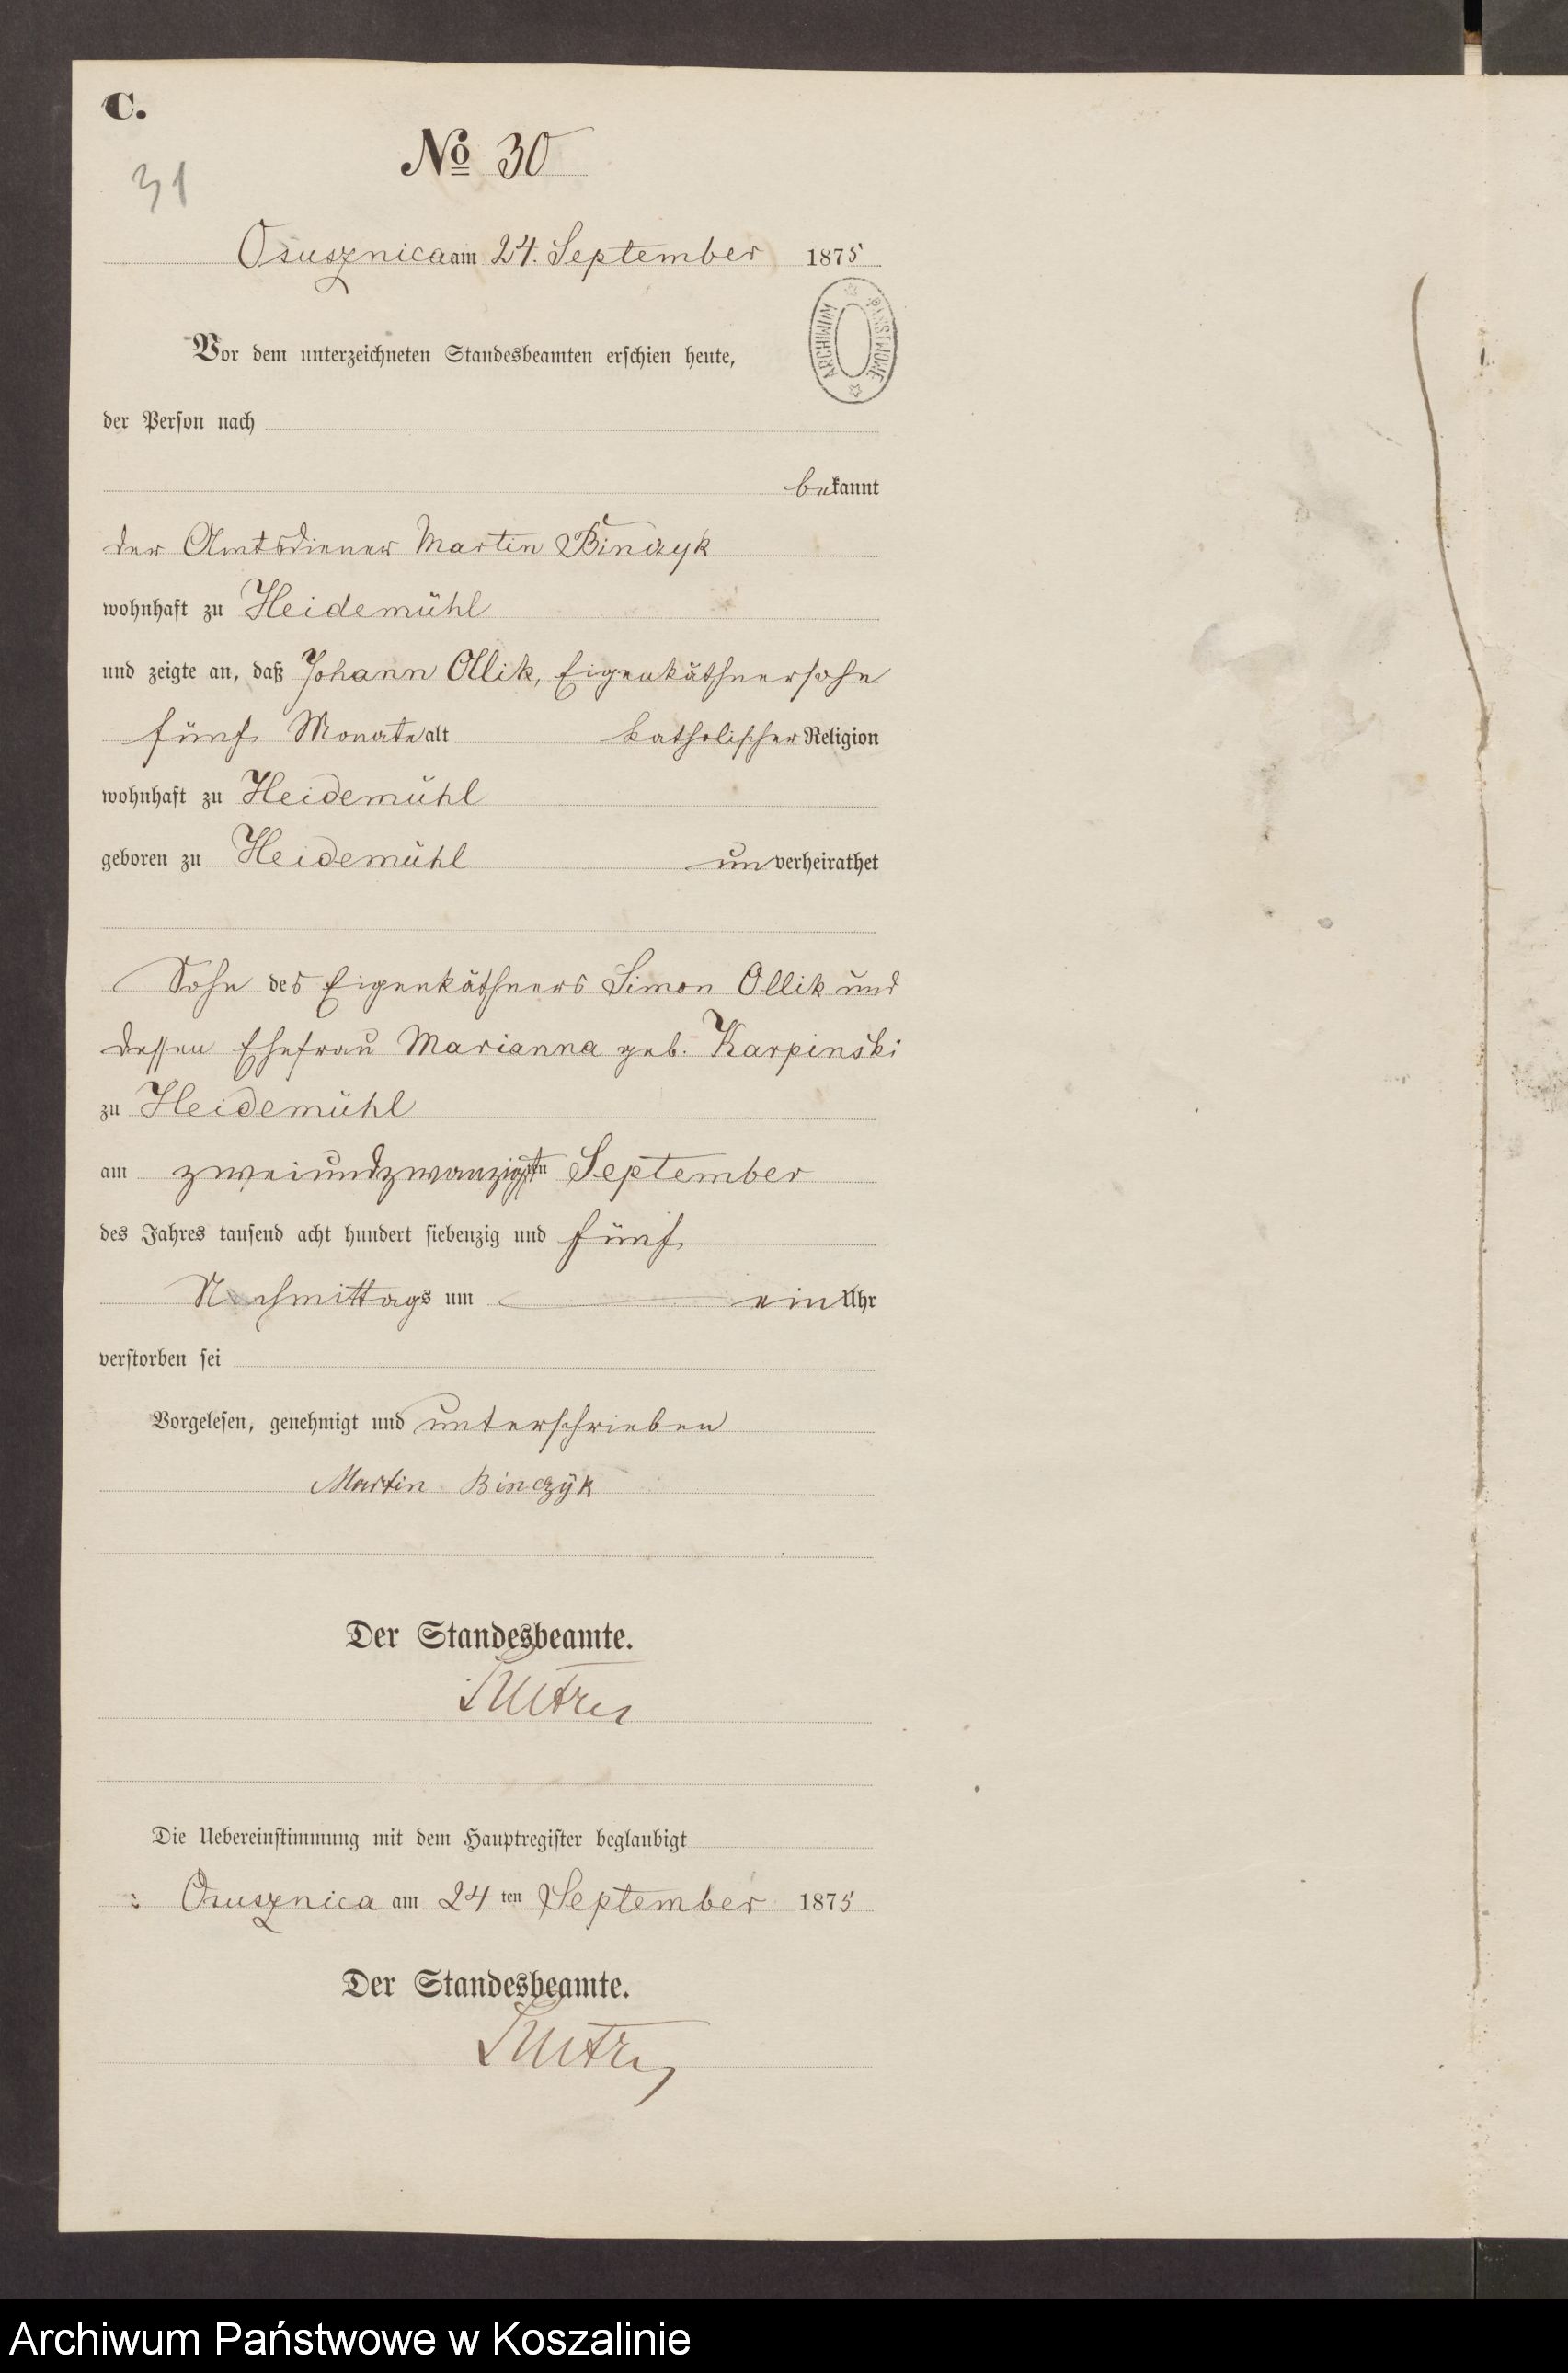 C.
31
No 30
Osusznica am 24. September 1875
ARCHIWUM PAŃSTWOWE
Vor dem unterzeichneten Standesbeamten erschien heute,
der Person nach
bekannt
der Amtsdiener Martin Binczyk
wohnhaft zu Heidemühl
und zeigte an, daß Johann Ollik, Eigenkäthnersohn
fünf Monate alt katholischer Religion
wohnhaft zu Heidemühl
geboren zu Heidemühl unverheirathet
Sohn des Eigenkäthners Simon Ollik und
dessen Ehefrau Marianna geb. Karpinski
zu Heidemühl
am zweiundzwanzigsten September
des Jahres tausend acht hundert siebenzig und fünf
Nachmittags um ein Uhr
verstorben sei
Vorgelesen, genehmigt und unterschrieben
Martin Binczyk
Der Standesbeamte.
Die Uebereinstimmung mit dem Hauptregister beglaubigt
Osusznica am 24 ten September 1875
Der Standesbeamte.
Archiwum Państwowe w Koszalinie